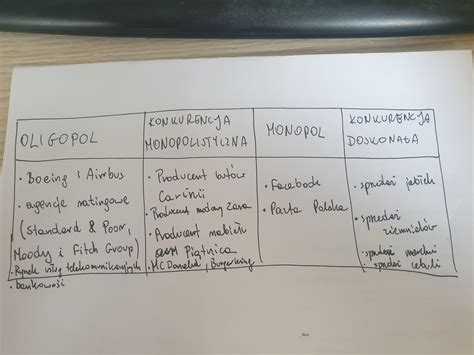 OLIGOPOL
• Boeing i Airbus
• agencje ratingowe
(Standard & Poor,
Moody i Fitch Group)
• Rynek usług telekomunikacyjnych
• bankowość
KONKURENCJA
MONOPOLISTYCZNA
• Producent butów
Carinii
• Producent modowy Zara
• Producent nabiału
Piątnica
• MC Donald's, Burgerking
MONOPOL
• Facebook
• Poczta Polska
KONKURENCJA
DOSKONAŁA
• sprzedaż jabłek
• sprzedaż
ziemniaków
• sprzedaż marchwi
• sprzedaż cebuli